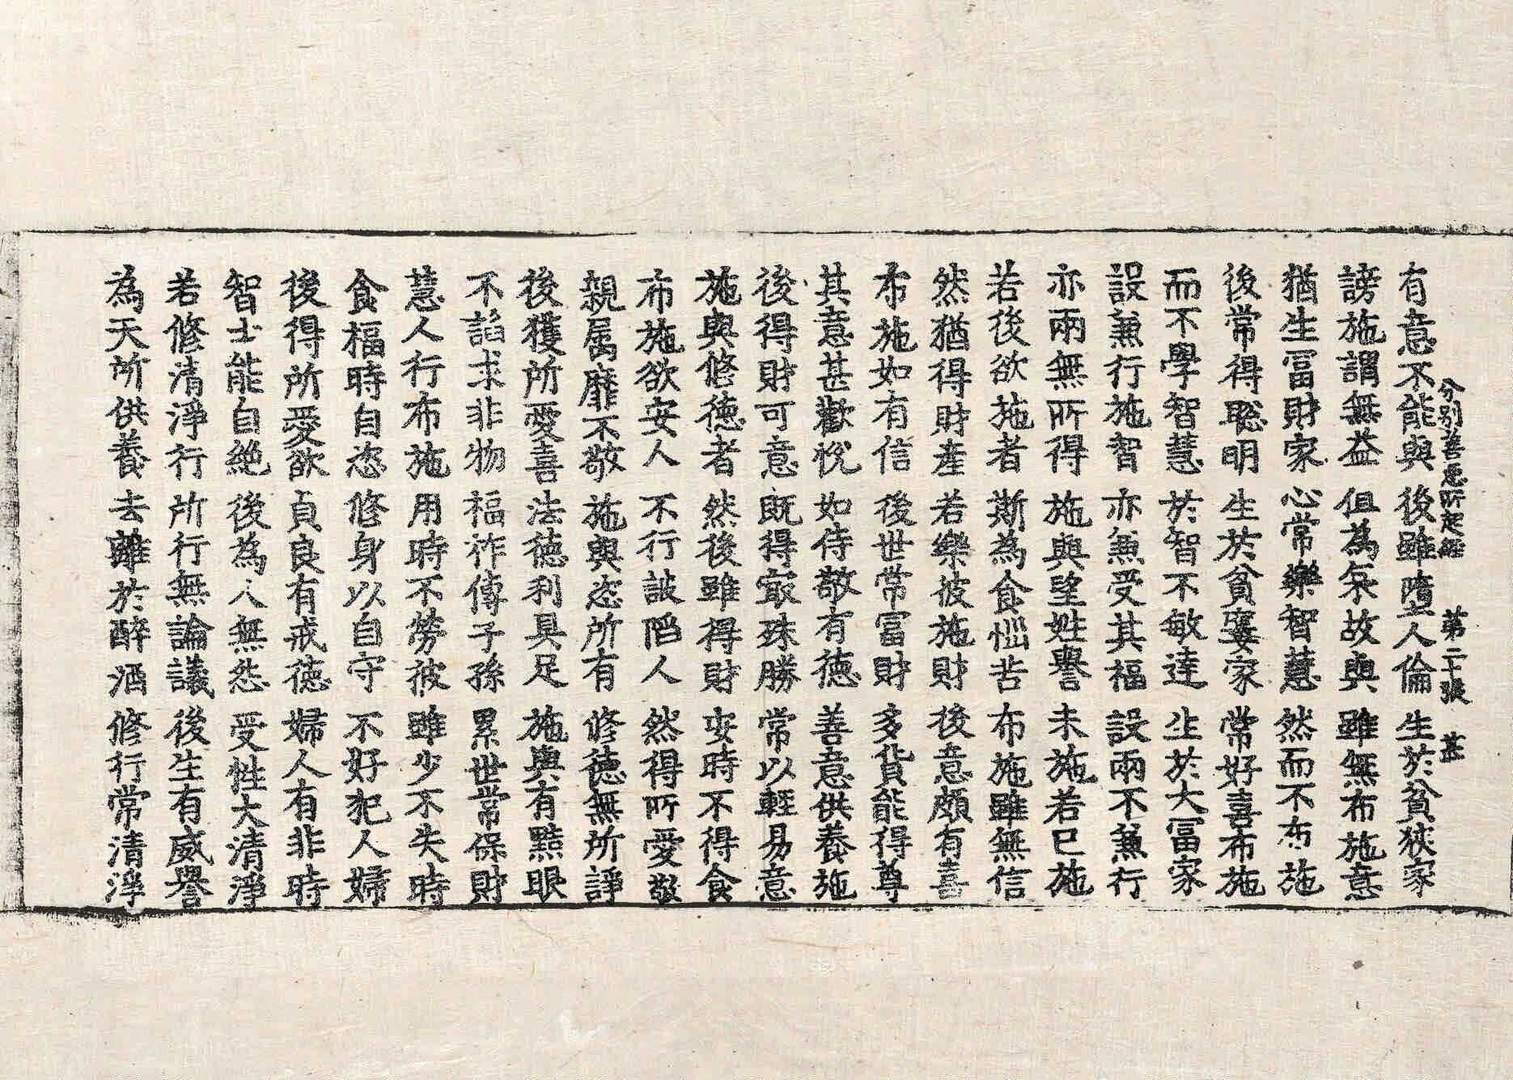 分别善惡所起經　第二十張　甚
有意不能與　後雖墮人倫　生於貧狹家
謗施謂無益　但為㐫故與　雖無布施意
猶生冨財家　心常樂智慧　然而不布施
後常得聡明　生於貧寠家　常好喜布施
而不學智慧　於智不敏達　生於大冨家
設兼行施智　亦兼受其福　設兩不兼行
亦兩無所得　施與望姓譽　未施若已施
若後欲施者　斯為食惱苦　布施雖無信
然猶得財產　若樂彼施財　後意頗有喜
布施如有信　後世常冨財　多貨能得尊
其意甚歡悅　如侍敬有德　善意供養施
後得財可意　既得㝡殊勝　常以輕易意
施與修德者　然後雖得財　安時不得食
布施欲安人　不行詖陷人　然得所愛敬
親属靡不敬　施與恣所有　修德無所諍
後獲所愛喜　法德利具足　施與有黠眼
不諂求非物　福祚傳子孫　累世常保財
慧人行布施　用時不勞彼　雖少不失時
食福時自恣　修身以自守　不好犯人婦
後得所愛欲　貞良有戒德　婦人有非時
智士能自絕　後為人無怨　受性大清淨
若修清淨行　所行無論議　後生有威譽
為天所供養　去離於醉酒　修行常清淨